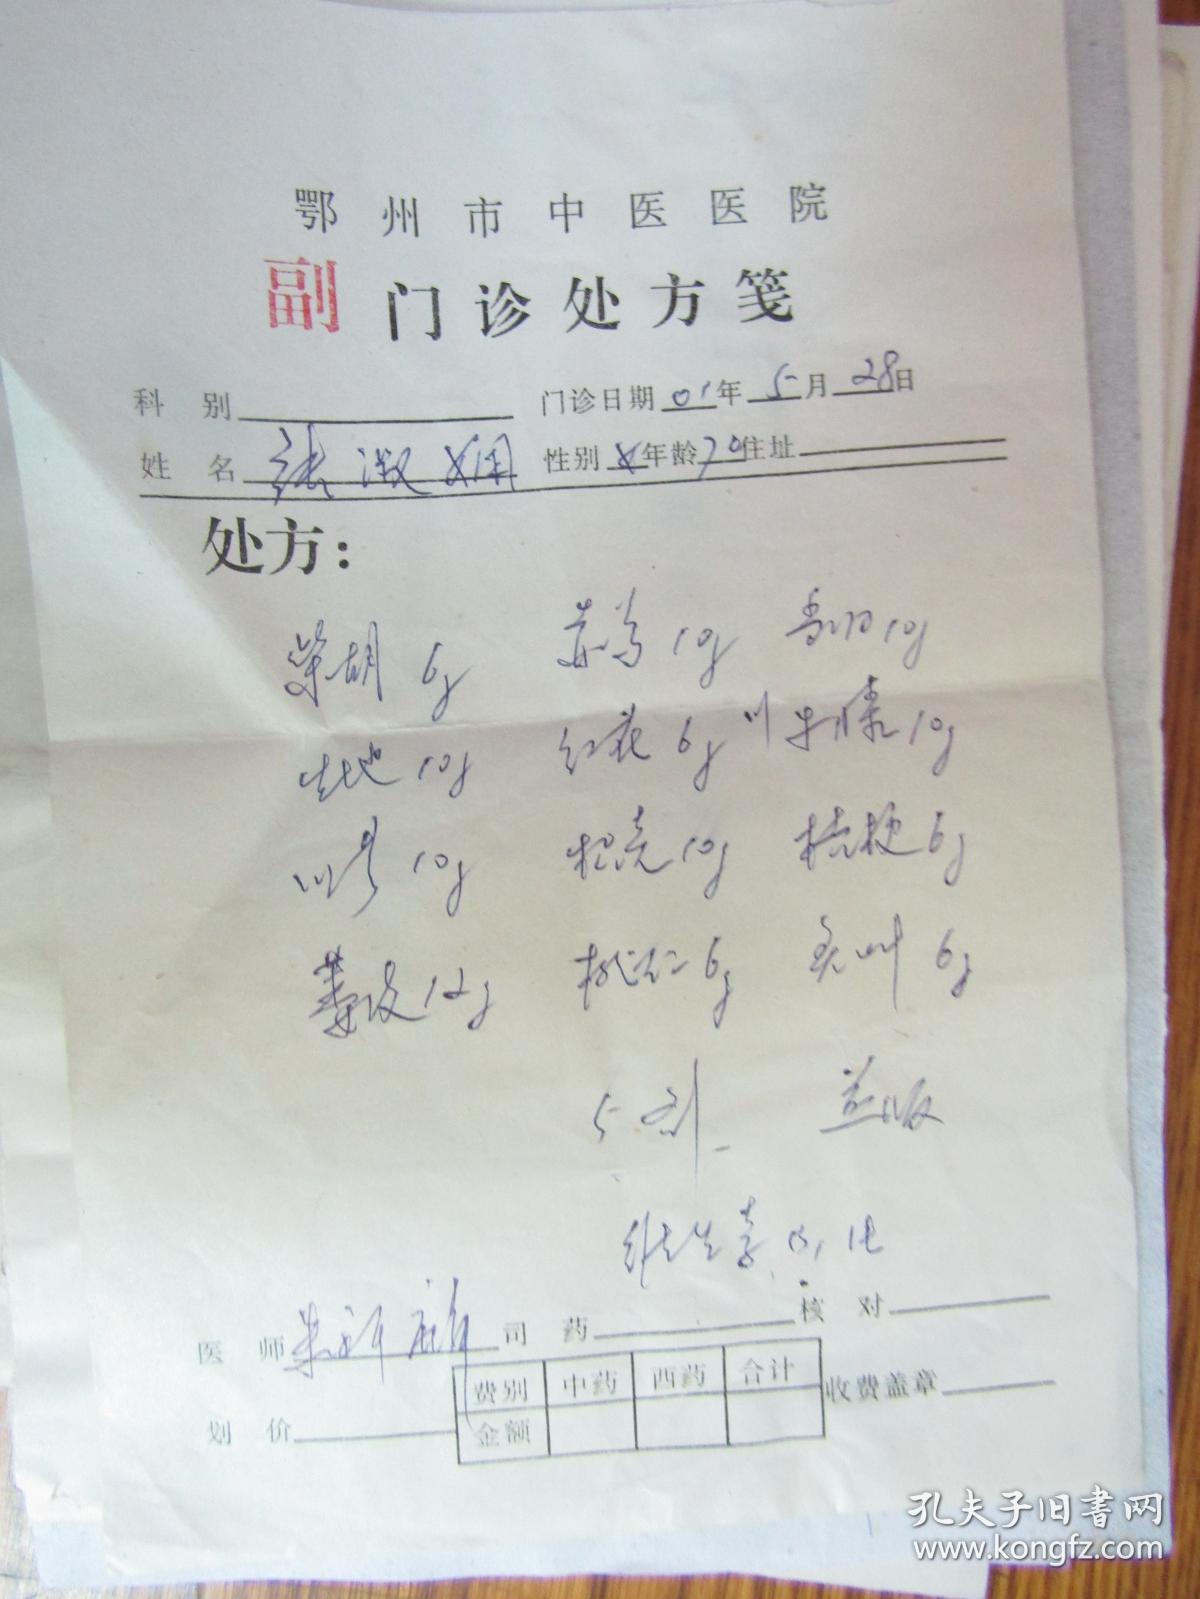 鄂州市中医医院
副 门诊处方笺
科别 门诊日期 01年 5月 28日
姓名 张淑娴 性别 女 年龄 70 住址
处方：
柴胡 6g 赤芍 10g 当归 10g
生地 10g 红花 6g 川牛膝 10g
川芎 10g 枳壳 10g 桔梗 6g
蒌皮 12g 桃仁 6g 6g
5剂
维生素
医师 朱 司药 核对
费别 中药 西药 合计 收费盖章
划价 金额
孔夫子旧书网
www.kongfz.com